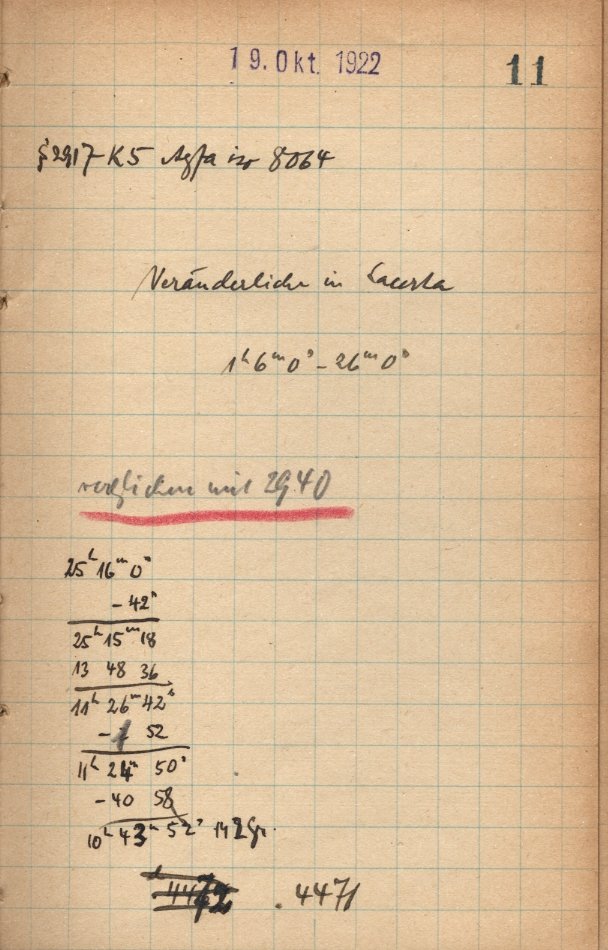 19. Okt. 1922
11
§ 2917 K5 Agfa iso 8064
Veränderliche in Lacerta
1ʰ6ᵐ0ˢ - 26ᵐ0ˢ
verglichen mit 2940
25ʰ 16ᵐ 0ˢ
- 42ˢ
25ʰ 15ᵐ 18
13 48 36
11ʰ 26ᵐ 42ˢ
- 1 52
11ʰ 24ᵐ 50ˢ
- 40 58
10ʰ 43ᵐ 52ˢ M Z Gr.
4472 . 4471